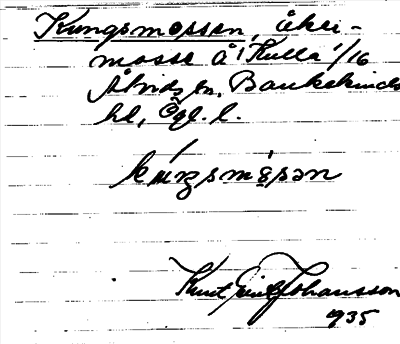 Kungsmossen, åker-
mosse å Kulla 1/16
Åtvids sn, Bankekinds
hd, Ögl. l.
kúŋsmòsən
Knut Erik Johansson
1935